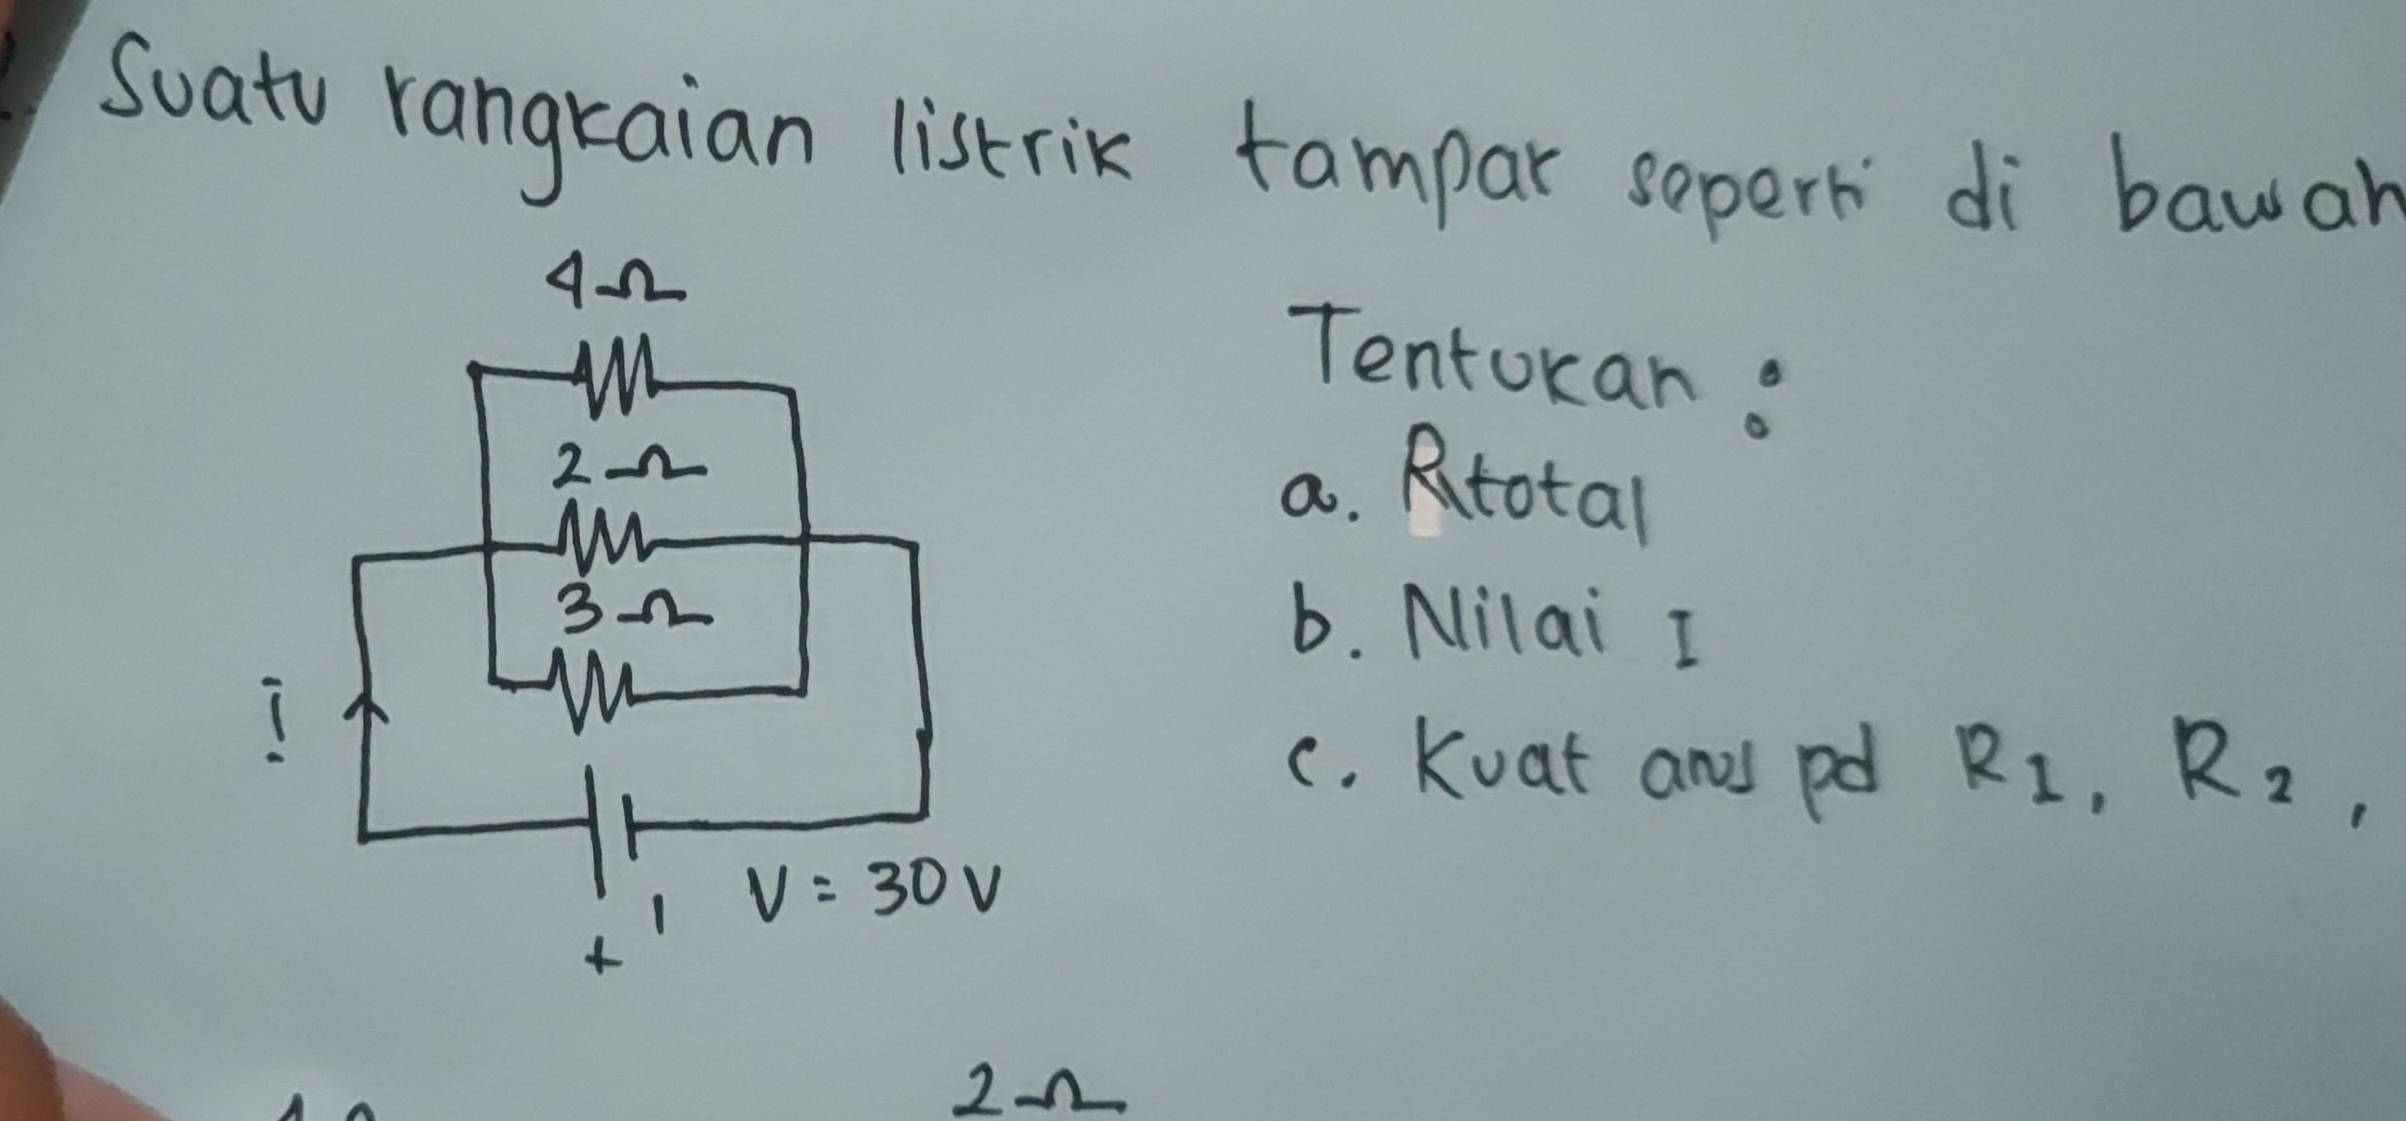 Suatu rangkaian listrik tampak seperti di bawah
4Ω
2Ω
3Ω
i
V = 30 V
+
Tentukan :
a. Rtotal
b. Nilai I
c. Kuat arus pd R1, R2,
2Ω